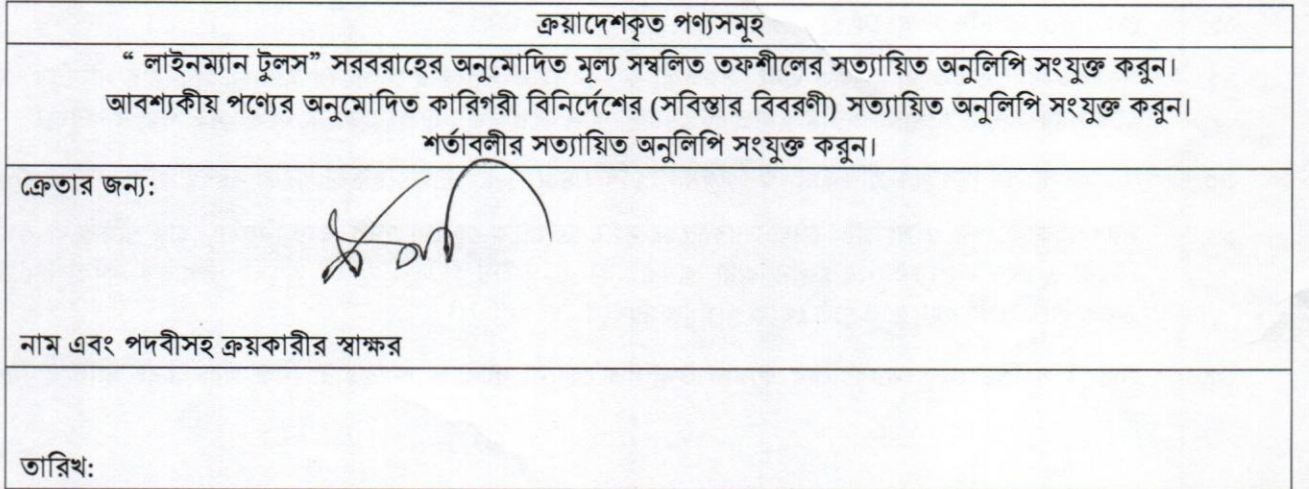 ক্রয়াদেশকৃত পণ্যসমূহ
“ লাইনম্যান টুলস” সরবরাহের অনুমোদিত মূল্য সম্বলিত তফশীলের সত্যায়িত অনুলিপি সংযুক্ত করুন।
আবশ্যকীয় পণ্যের অনুমোদিত কারিগরী বিনির্দেশের (সবিস্তার বিবরণী) সত্যায়িত অনুলিপি সংযুক্ত করুন।
শর্তাবলীর সত্যায়িত অনুলিপি সংযুক্ত করুন।
ক্রেতার জন্য:
নাম এবং পদবীসহ ক্রয়কারীর স্বাক্ষর
তারিখ: